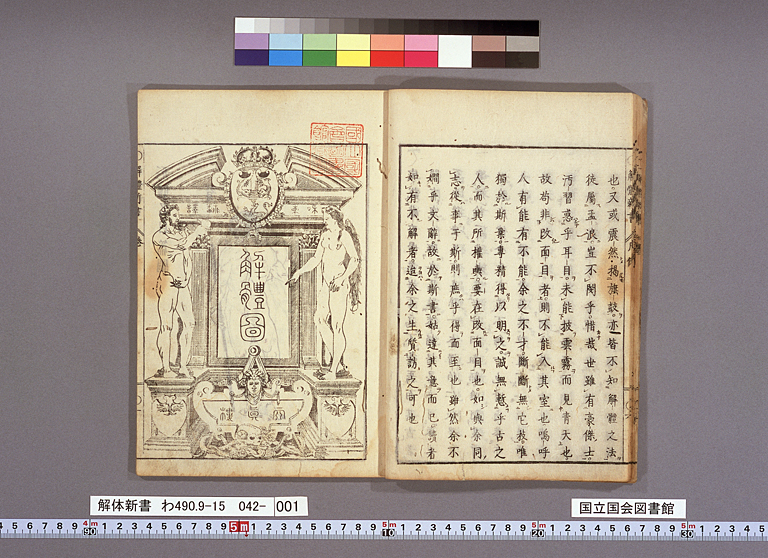 也又或震然揭旗鼓亦皆不知解體之法
徒屬孟浪豈不閔乎惜哉世雖有豪傑士
汚習惑乎耳目未能披雲霧而見青天也
故苟非改面目者則不能入其室也嗚呼
人有能有不能余之不才斷斷無它技唯
獨於斯業專精得以明之誠無慙乎古之
人而其所權輿要在改面目也如與余同
志從事于斯則庶乎得而至也雖然余不
嫺乎文辭故於斯書姑達其意而已讀者
如有不解者追余之生質訪之可也
解體圖
解体新書 わ490.9-15 042- 001
国立国会図書館